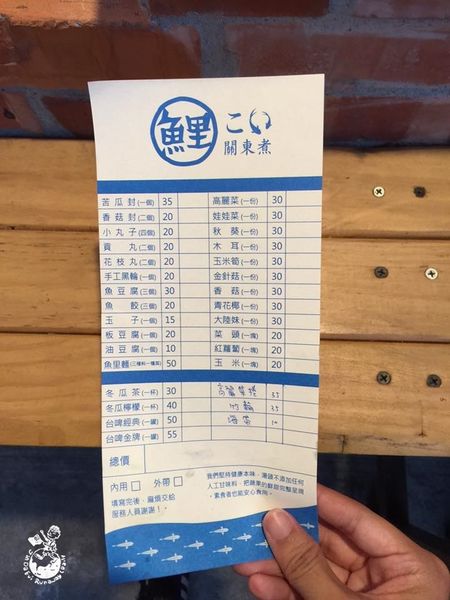 鯉 こい
關東煮
苦瓜封(一個) 35 高麗菜(一份) 30
香菇封(二個) 20 娃娃菜(一份) 30
小丸子(四個) 20 秋葵(一份) 30
貢丸(二個) 20 木耳(一份) 30
花枝丸(二個) 20 玉米筍(一份) 30
手工黑輪(一個) 20 金針菇(一份) 30
魚豆腐(三個) 30 香菇(一份) 30
魚餃(三個) 20 青花椰(一份) 30
玉子(一個) 15 大陸妹(一份) 30
板豆腐(一個) 20 菜頭(一塊) 20
油豆腐(一個) 10 紅蘿蔔(一塊) 20
魚里麵(三種料一種麵) 50 玉米(一塊) 20
冬瓜茶(一杯) 30 高麗菜捲 35
冬瓜檸檬(一杯) 40 竹輪 35
台啤經典(一罐) 50 海帶 10
台啤金牌(一罐) 55
總價
內用 外帶
填寫完後,麻煩交給
服務人員謝謝!
我們堅持健康本味,湯頭不添加任何
人工甘味料,把蔬果的鮮甜完整呈現
,素食者也能安心食用。